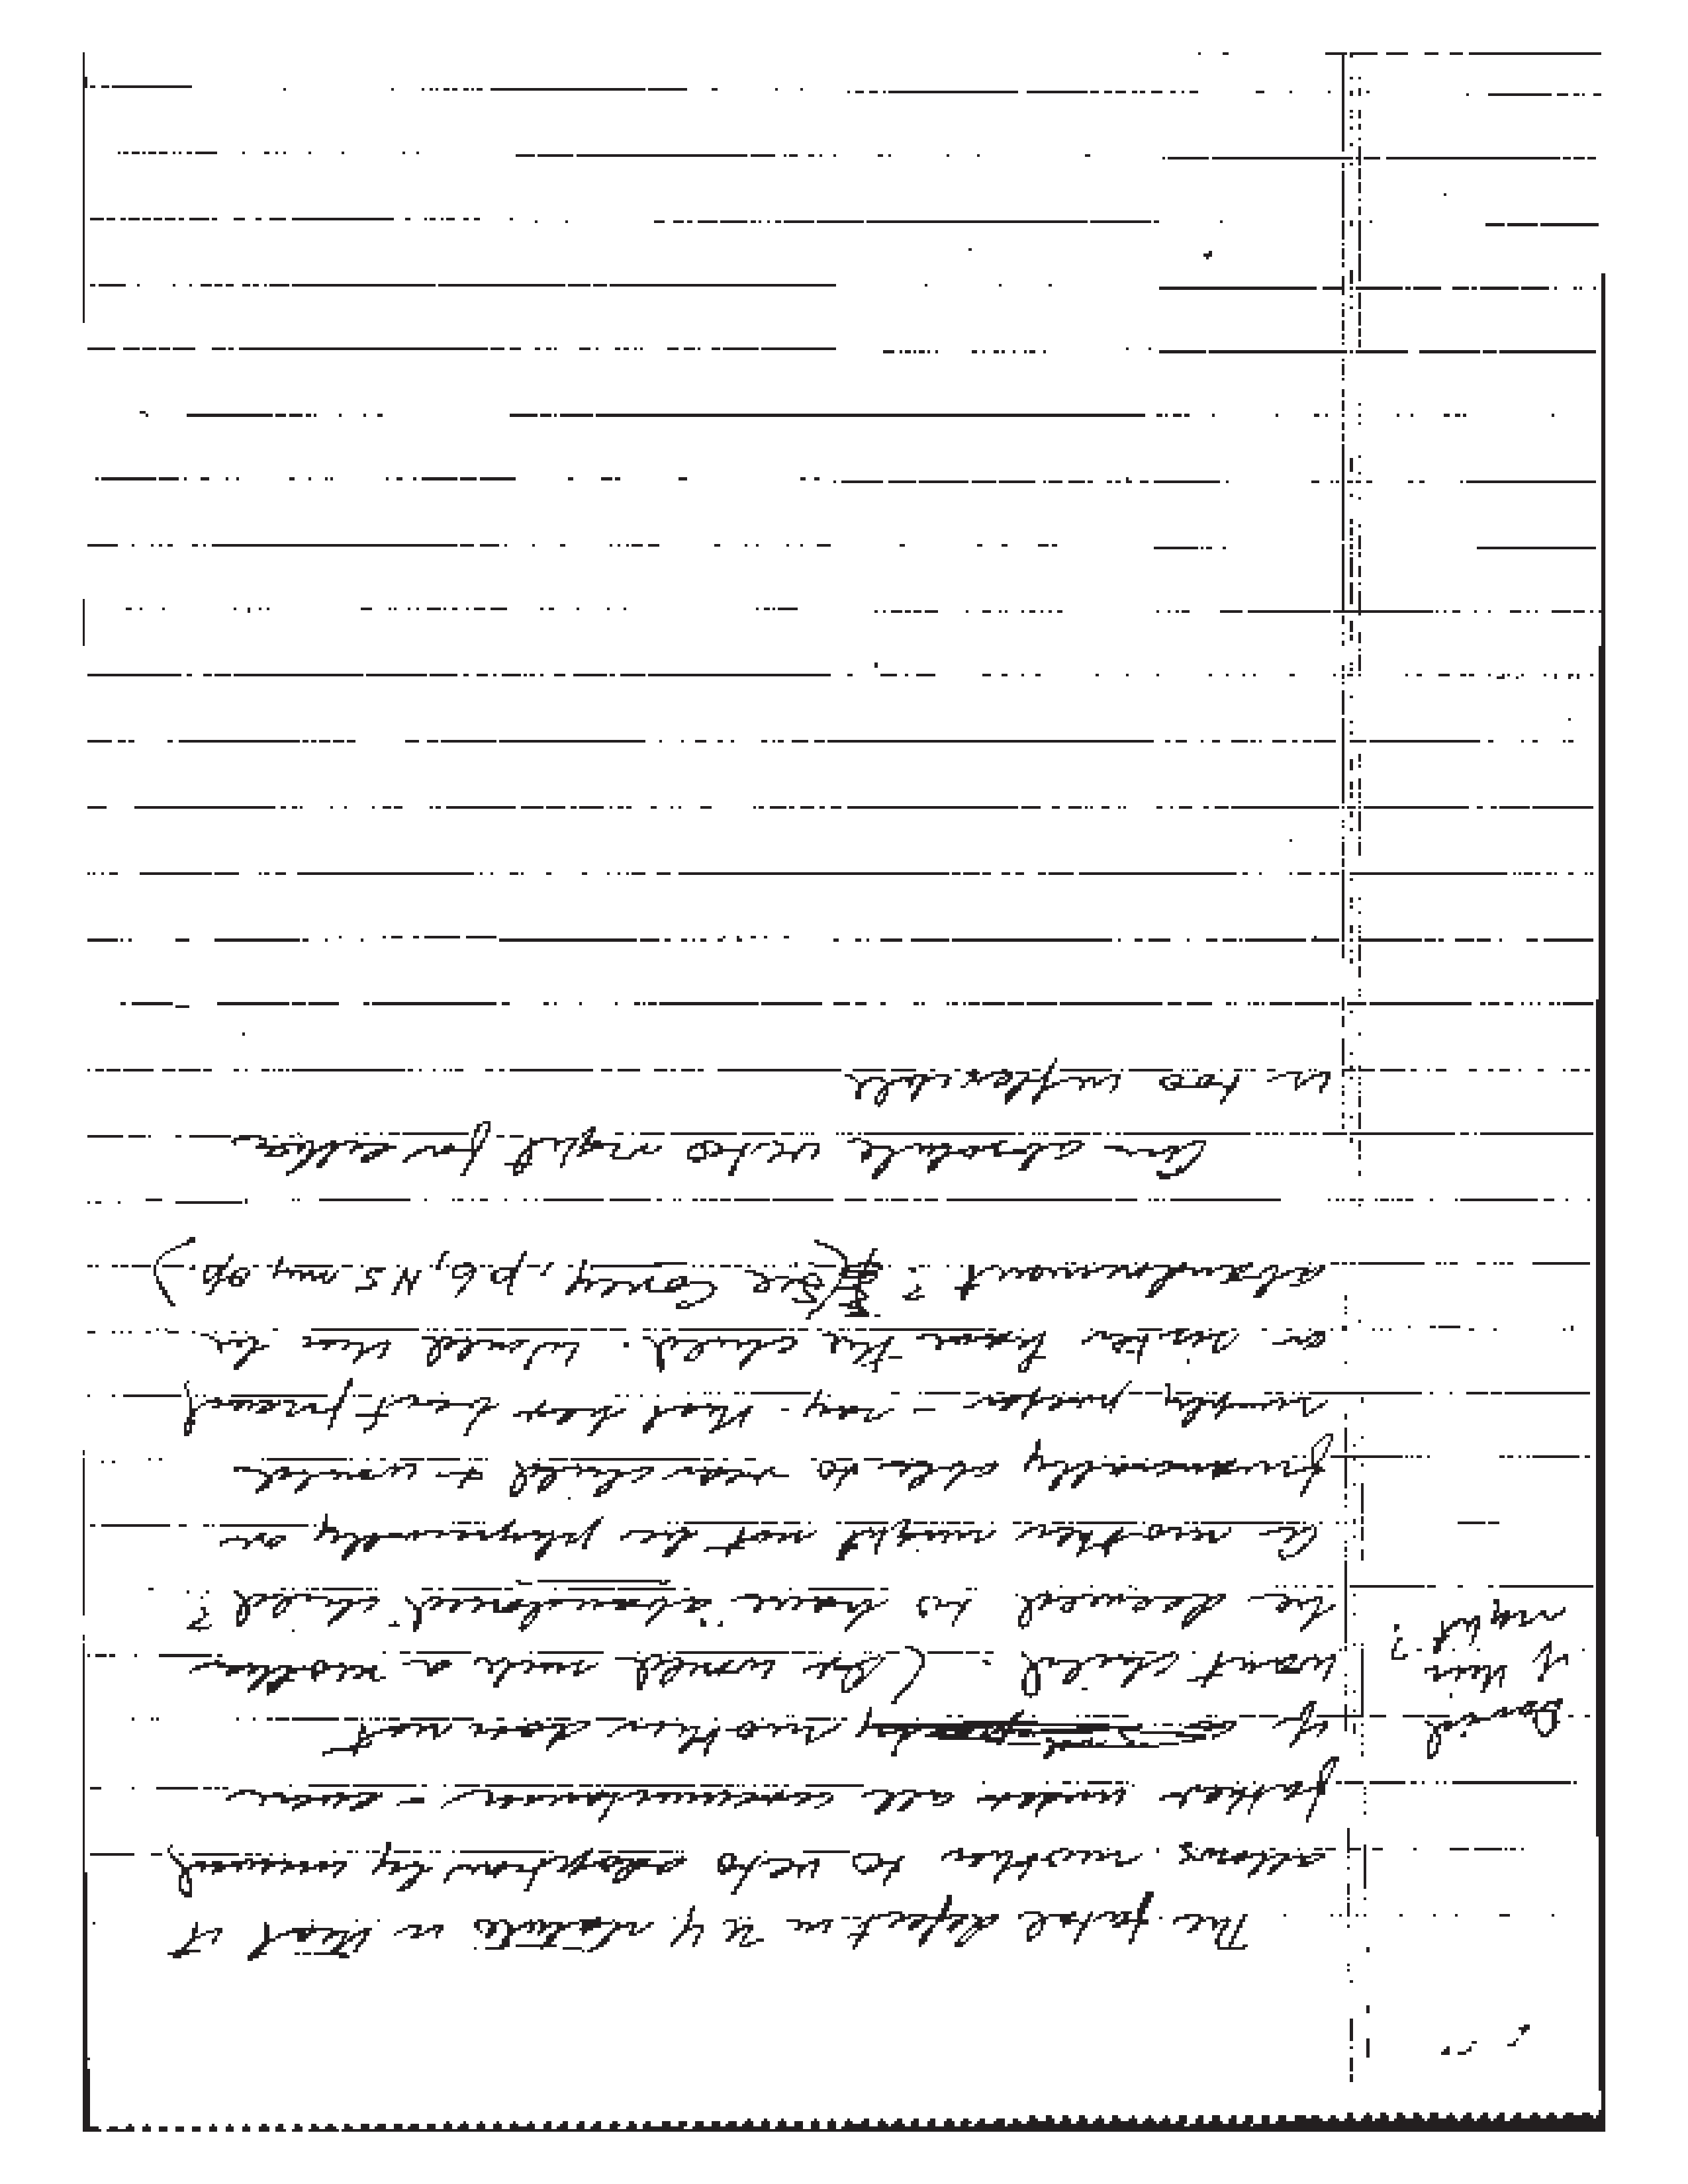 The fatal defect in N Y statute is that it
allows mother to veto adoption by unwed
father under all circumstances - even
if mother does not
want child. (Or would such a mother
be deemed to have "abandoned" child?
A mother might not be physically or
financially able to rear child & would
simply prefer - say - that her best friend
or sister have the child. Would this be
abandonment? (See Corey, p 6, N 5 my op.)
An absolute veto right for either
is too inflexible
David
is this
right?